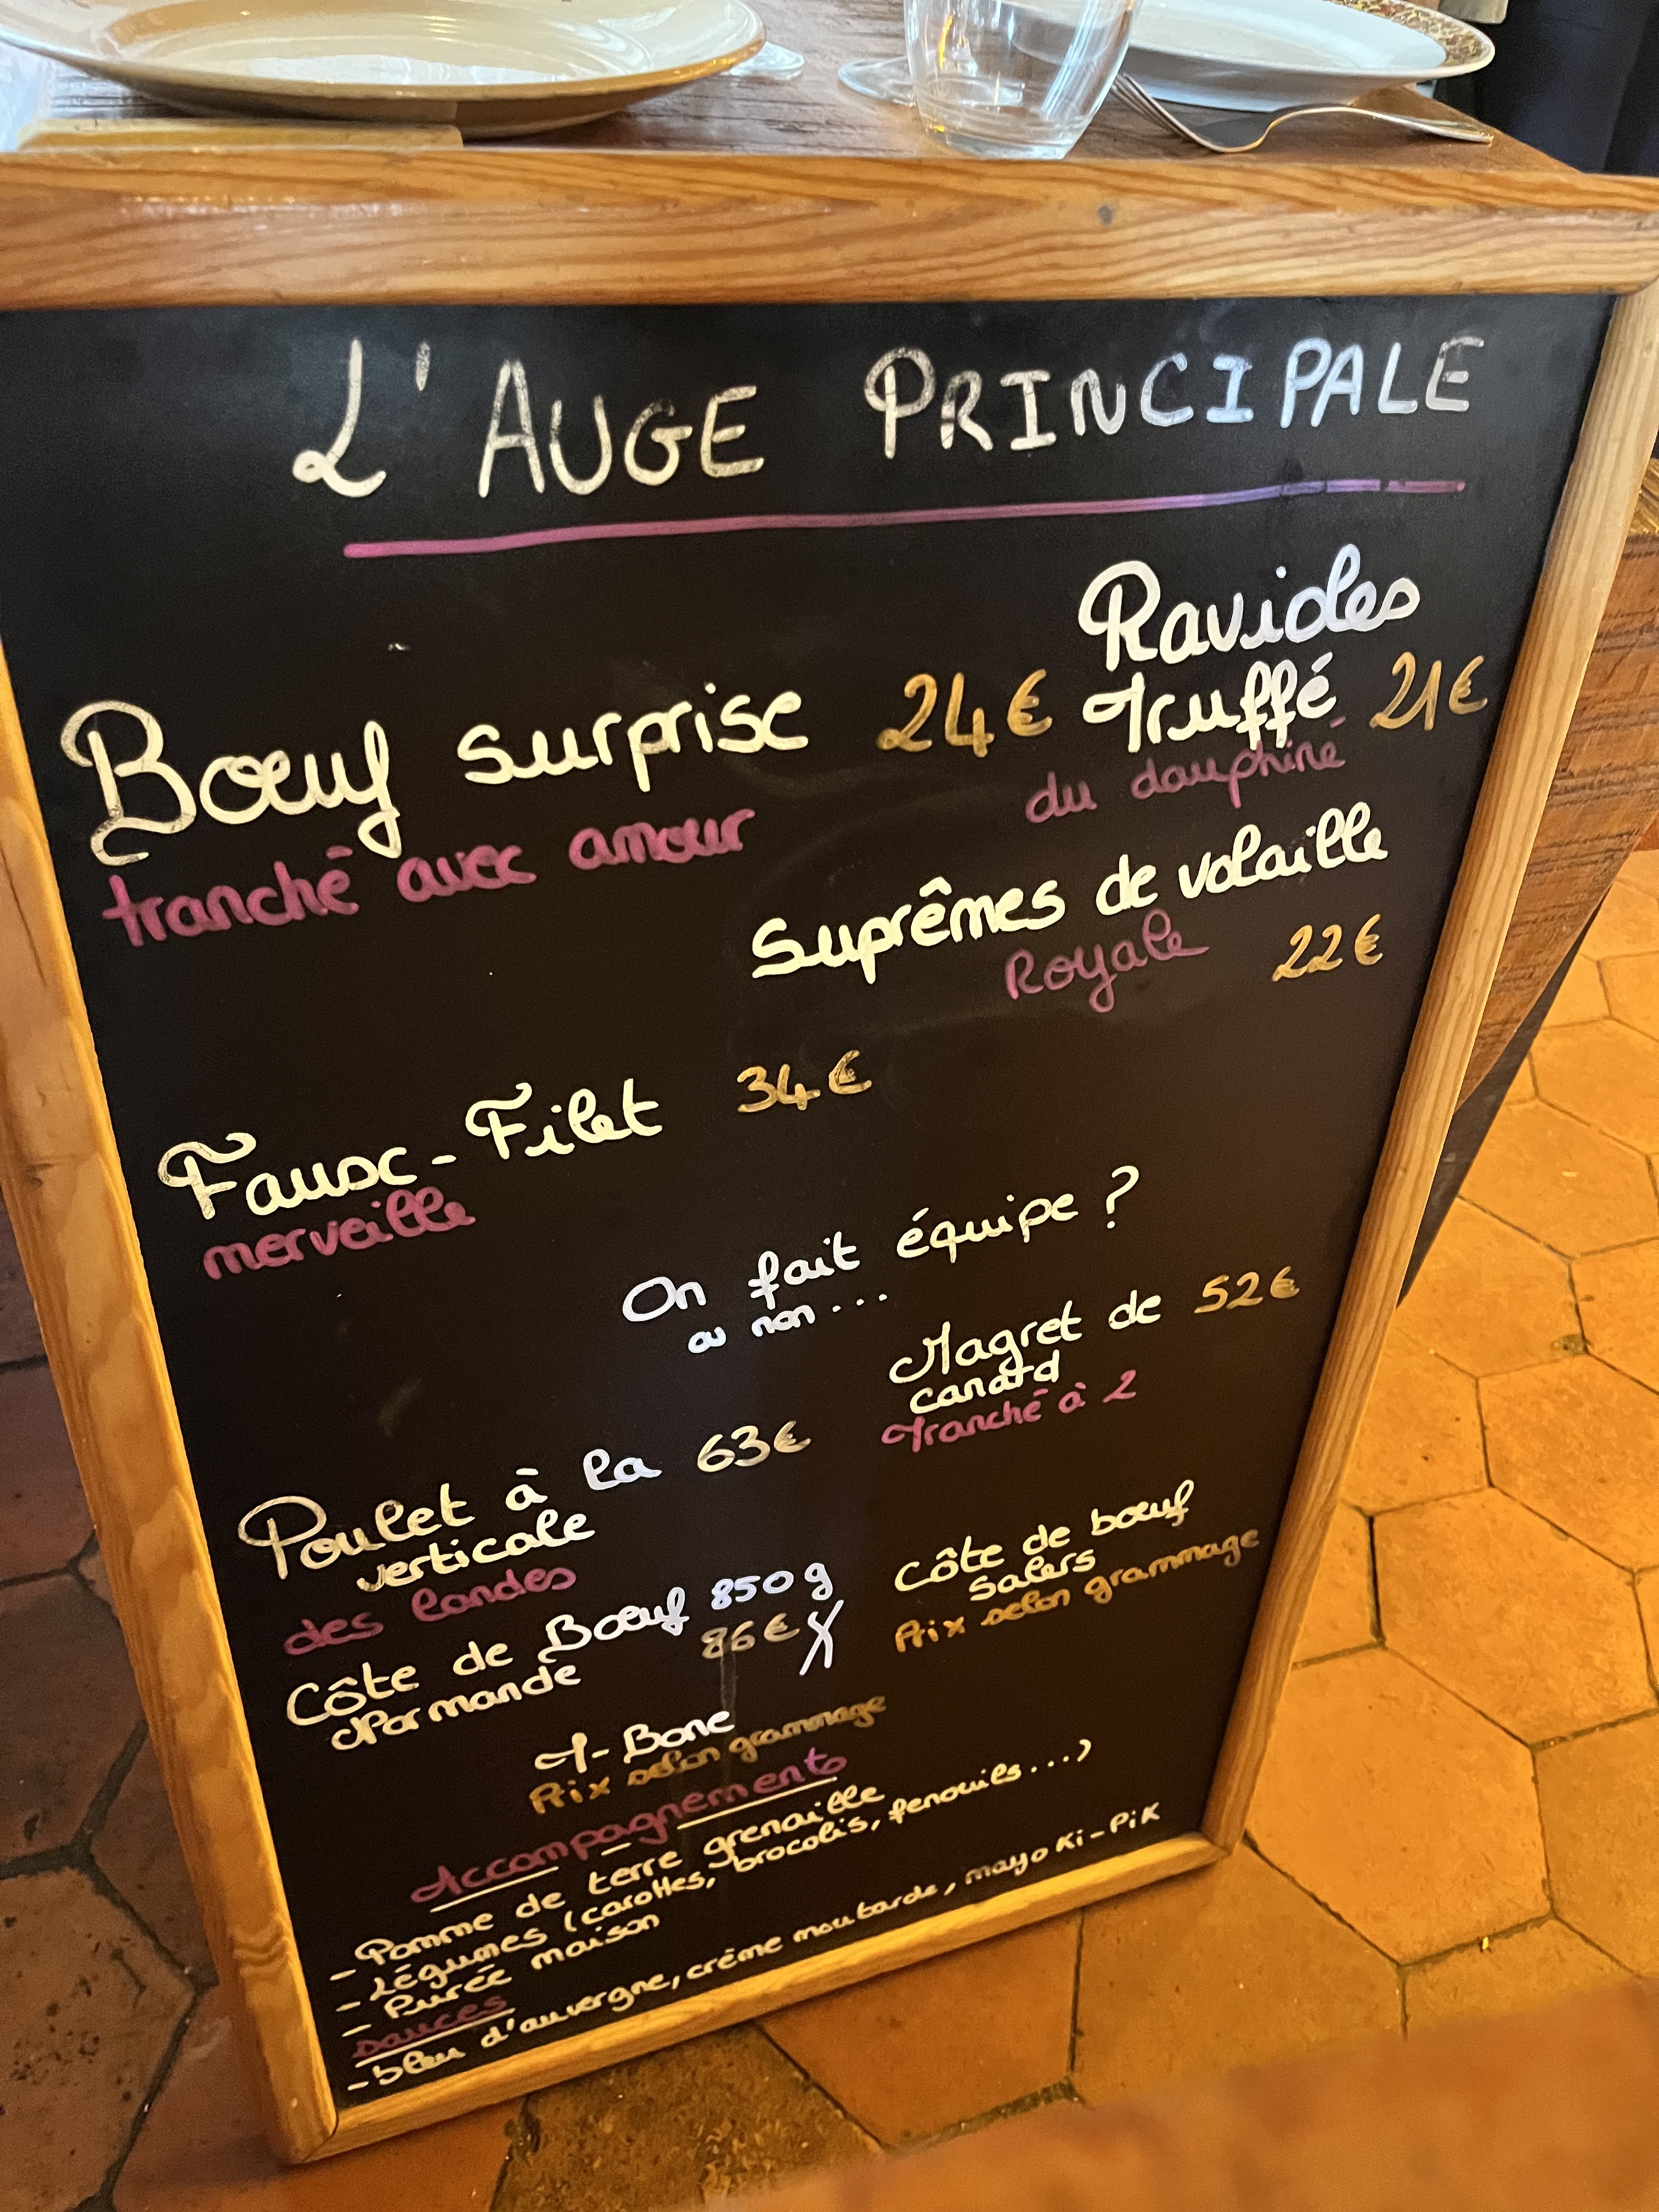 L'AUGE PRINCIPALE
Ravioles
Truffé 21€
du dauphiné
Bœuf surprise 24€
tranché avec amour
Suprêmes de volaille
Royale 22€
Faux-Filet 34€
merveille
On fait équipe ?
ou non...
Magret de 52€
canard
Tranché à 2
Poulet à la 63€
verticale
des landes
Côte de Bœuf 850g
Normande 86€ X
Côte de bœuf
Salers
Prix selon grammage
T-Bone
Prix selon grammage
Accompagnements
- Pomme de terre grenaille
- Légumes (carottes, brocolis, fenouils...)
- Purée maison
Sauces
- bleu d'auvergne, crème moutarde, mayo Ki-PiK